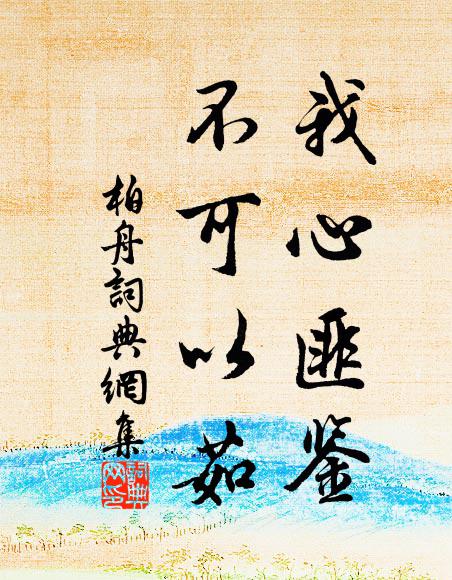 我心匪鉴
不可以茹
柏舟詞典網集